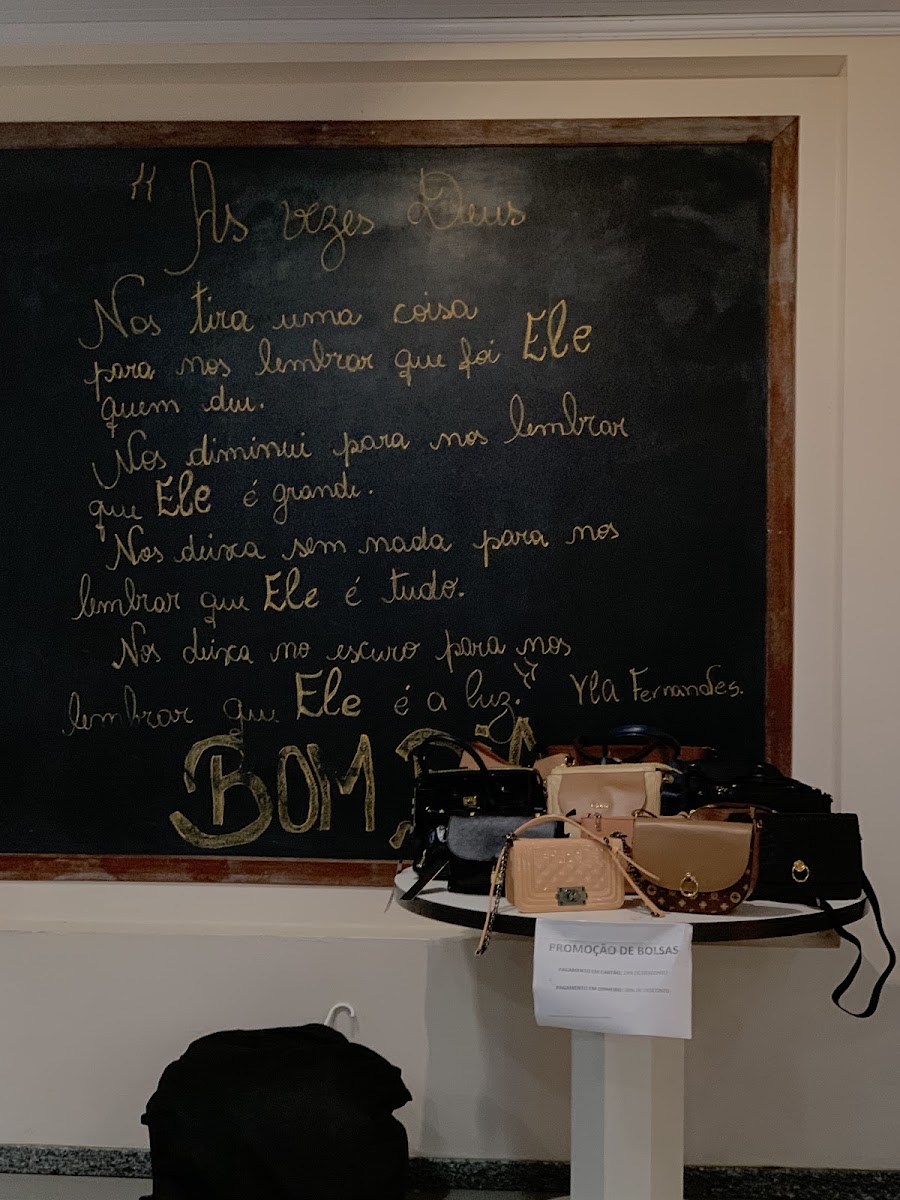 " As vezes Deus
Nos tira uma coisa
para nos lembrar que foi Ele
quem deu.
Nos diminui para nos lembrar
que Ele é grande.
Nos deixa sem nada para nos
lembrar que Ele é tudo.
Nos deixa no escuro para nos
lembrar que Ele é a luz." Yla Fernandes.
BOM
PROMOÇÃO DE BOLSAS
PAGAMENTO EM CARTÃO:
PAGAMENTO EM DINHEIRO: